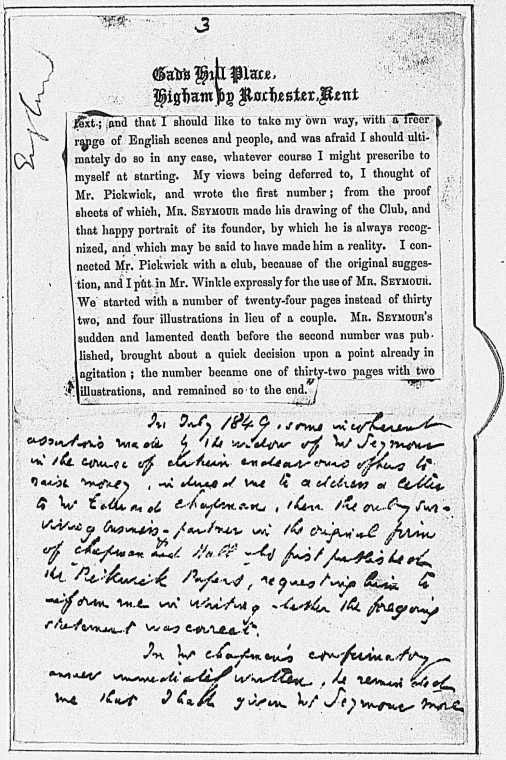 3
England
Gad's Hill Place,
Higham by Rochester, Kent
text; and that I should like to take my own way, with a freer
range of English scenes and people, and was afraid I should ulti-
mately do so in any case, whatever course I might prescribe to
myself at starting. My views being deferred to, I thought of
Mr. Pickwick, and wrote the first number; from the proof
sheets of which, MR. SEYMOUR made his drawing of the Club, and
that happy portrait of its founder, by which he is always recog-
nized, and which may be said to have made him a reality. I con-
nected Mr. Pickwick with a club, because of the original sugges-
tion, and I put in Mr. Winkle expressly for the use of MR. SEYMOUR.
We started with a number of twenty-four pages instead of thirty
two, and four illustrations in lieu of a couple. MR. SEYMOUR'S
sudden and lamented death before the second number was pub-
lished, brought about a quick decision upon a point already in
agitation; the number became one of thirty-two pages with two
illustrations, and remained so to the end."
In July 1849, some incoherent
assertions made by the widow of Mr Seymour
in the course of certain endeavours of hers to
raise money, induced me to address a letter
to Mr Edward Chapman, then the only sur-
viving business-partner in the original firm
of Chapman and Hall who first published
the Pickwick Papers, requesting him to
inform me in writing whether the foregoing
statement was correct.
In Mr Chapman's confirmatory
answer immediately written, he reminded
me that I had given Mr Seymour more